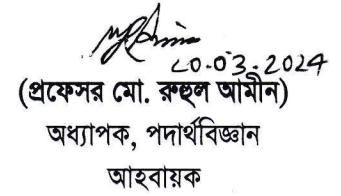 20.03.2024
(প্রফেসর মো. রুহুল আমীন)
অধ্যাপক, পদার্থবিজ্ঞান
আহবায়ক